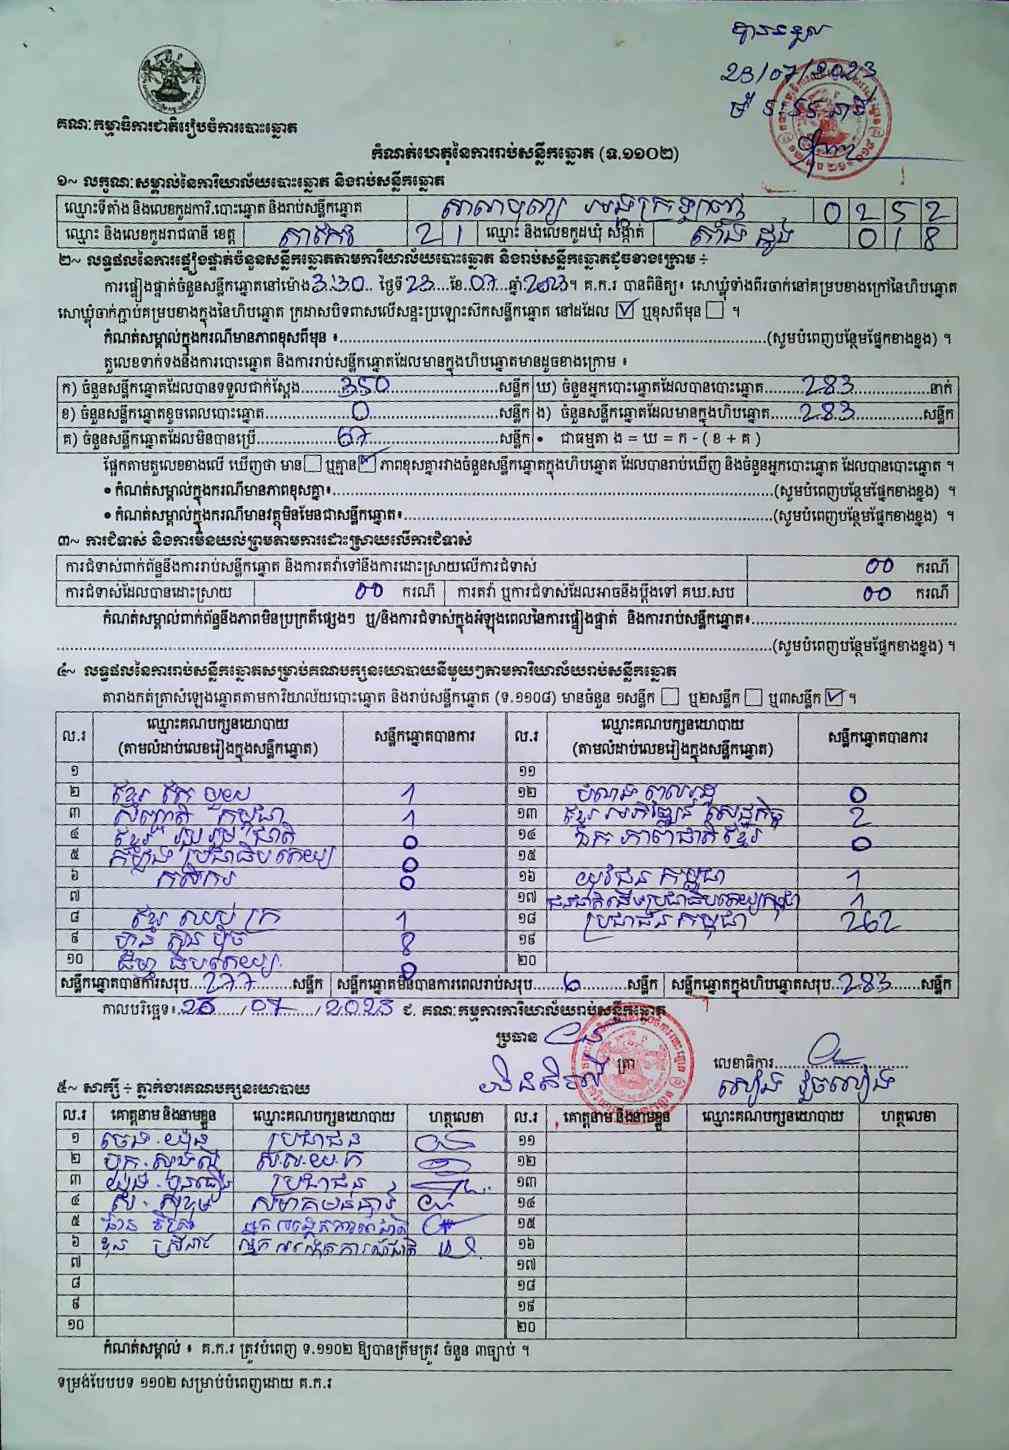 បានទទួល
23/07/2023
គណៈកម្មាធិការជាតិរៀបចំការបោះឆ្នោត
កំណត់ហេតុនៃការរាប់សន្លឹកឆ្នោត (ទ.១១០២)
១~ លក្ខណៈសម្គាល់នៃការិយាល័យបោះឆ្នោត និងរាប់សន្លឹកឆ្នោត
ឈ្មោះទីតាំង និងលេខកូដការិ.បោះឆ្នោត និងរាប់សន្លឹកឆ្នោត សាលាបុណ្យ 0 2 5 2
ឈ្មោះ និងលេខកូដរាជធានី ខេត្ត តាកែវ 2 1 ឈ្មោះ និងលេខកូដឃុំ សង្កាត់ 0 1 8
២~ លទ្ធផលនៃការផ្ទៀងផ្ទាត់ចំនួនសន្លឹកឆ្នោតតាមការិយាល័យបោះឆ្នោត និងរាប់សន្លឹកឆ្នោតដូចខាងក្រោម ÷
ការផ្ទៀងផ្ទាត់ចំនួនសន្លឹកឆ្នោតនៅម៉ោង 3:30 ថ្ងៃទី 23 ខែ 07 ឆ្នាំ 2023។ គ.ក.រ បានពិនិត្យ៖ សោឃ្លុំទាំងពីរចាក់នៅគម្របខាងក្រៅនៃហិបឆ្នោត
សោឃ្លុំចាក់ភ្ជាប់គម្របខាងក្នុងនៃហិបឆ្នោត ក្រដាសបិទពាសលើសន្ទះប្រឡោះស៊កសន្លឹកឆ្នោត នៅដដែល ☑ ឬខុសពីមុន ☐ ។
កំណត់សម្គាល់ក្នុងករណីមានភាពខុសពីមុន ៖ (សូមបំពេញបន្ថែមផ្នែកខាងខ្នង) ។
តួលេខទាក់ទងនឹងការបោះឆ្នោត និងការរាប់សន្លឹកឆ្នោតដែលមានក្នុងហិបឆ្នោតមានដូចខាងក្រោម ៖
ក) ចំនួនសន្លឹកឆ្នោតដែលបានទទួលជាក់ស្តែង 350 សន្លឹក ឃ) ចំនួនអ្នកបោះឆ្នោតដែលបានបោះឆ្នោត 283 នាក់
ខ) ចំនួនសន្លឹកឆ្នោតខូចពេលបោះឆ្នោត 0 សន្លឹក ង) ចំនួនសន្លឹកឆ្នោតដែលមានក្នុងហិបឆ្នោត 283 សន្លឹក
គ) ចំនួនសន្លឹកឆ្នោតដែលមិនបានប្រើ 67 សន្លឹក • ជាធម្មតា ង = ឃ = ក - ( ខ + គ )
ផ្អែកតាមតួលេខខាងលើ ឃើញថា មាន ☐ ឬគ្មាន ☑ ភាពខុសគ្នារវាងចំនួនសន្លឹកឆ្នោតក្នុងហិបឆ្នោត ដែលបានរាប់ឃើញ និងចំនួនអ្នកបោះឆ្នោត ដែលបានបោះឆ្នោត ។
• កំណត់សម្គាល់ក្នុងករណីមានភាពខុសគ្នា៖ (សូមបំពេញបន្ថែមផ្នែកខាងខ្នង) ។
• កំណត់សម្គាល់ក្នុងករណីមានវត្ថុមិនមែនជាសន្លឹកឆ្នោត៖ (សូមបំពេញបន្ថែមផ្នែកខាងខ្នង) ។
៣~ ការជំទាស់ និងការមិនយល់ព្រមតាមការដោះស្រាយលើការជំទាស់
ការជំទាស់ពាក់ព័ន្ធនឹងការរាប់សន្លឹកឆ្នោត និងការតវ៉ាទៅនឹងការដោះស្រាយលើការជំទាស់ 00 ករណី
ការជំទាស់ដែលបានដោះស្រាយ 00 ករណី ការតវ៉ា ឬការជំទាស់ដែលអាចនឹងប្តឹងទៅ គឃ.សប 00 ករណី
កំណត់សម្គាល់ពាក់ព័ន្ធនឹងភាពមិនប្រក្រតីផ្សេងៗ ឬ/និងការជំទាស់ក្នុងអំឡុងពេលនៃការផ្ទៀងផ្ទាត់ និងការរាប់សន្លឹកឆ្នោត៖
(សូមបំពេញបន្ថែមផ្នែកខាងខ្នង) ។
៤~ លទ្ធផលនៃការរាប់សន្លឹកឆ្នោតសម្រាប់គណបក្សនយោបាយនីមួយៗតាមការិយាល័យរាប់សន្លឹកឆ្នោត
តារាងកត់ត្រាសំឡេងឆ្នោតតាមការិយាល័យបោះឆ្នោត និងរាប់សន្លឹកឆ្នោត (ទ.១១០៨) មានចំនួន ១សន្លឹក ☐ ឬ២សន្លឹក ☐ ឬ៣សន្លឹក ☑ ។
ល.រ ឈ្មោះគណបក្សនយោបាយ (តាមលំដាប់លេខរៀងក្នុងសន្លឹកឆ្នោត) សន្លឹកឆ្នោតបានការ ល.រ ឈ្មោះគណបក្សនយោបាយ (តាមលំដាប់លេខរៀងក្នុងសន្លឹកឆ្នោត) សន្លឹកឆ្នោតបានការ
១ ១១
២ ខ្មែរ តែ មួយ 1 ១២ 0
៣ សញ្ជាតិ កម្ពុជា 1 ១៣ ខ្មែរ អភិវឌ្ឍន៍ សេដ្ឋកិច្ច 2
៤ ខ្មែរ រួបរួម ជាតិ 0 ១៤ ឯកភាពជាតិ ខ្មែរ 0
៥ ប្រជាធិបតេយ្យ 0 ១៥
៦ កសិករ 0 ១៦ យុវជន កម្ពុជា 1
៧ ១៧ ជនជាតិដើមប្រជាធិបតេយ្យកម្ពុជា 1
៨ ខ្មែរ ឈប់ ក្រ 1 ១៨ ប្រជាជន កម្ពុជា 262
៩ ហ៊្វុនស៊ិនប៉ិច 8 ១៩
១០ ធិបតេយ្យ 0 ២០
សន្លឹកឆ្នោតបានការសរុប 277 សន្លឹក សន្លឹកឆ្នោតមិនបានការពេលរាប់សរុប 6 សន្លឹក សន្លឹកឆ្នោតក្នុងហិបឆ្នោតសរុប 283 សន្លឹក
កាលបរិច្ឆេទ៖ 23/07/2023 ជ. គណៈកម្មការការិយាល័យរាប់សន្លឹកឆ្នោត
ប្រធាន
ត្រា លេខាធិការ
៥~ សាក្សី ÷ ភ្នាក់ងារគណបក្សនយោបាយ
ល.រ គោត្តនាម និងនាមខ្លួន ឈ្មោះគណបក្សនយោបាយ ហត្ថលេខា ល.រ គោត្តនាម និងនាមខ្លួន ឈ្មោះគណបក្សនយោបាយ ហត្ថលេខា
១ ប្រជាជន ១១
២ ស.ស.យ.ក ១២
៣ ប្រជាជន ១៣
៤ ១៤
៥ អ្នកសង្កេតការណ៍ជាតិ ១៥
៦ អ្នកសង្កេតការណ៍ជាតិ ១៦
៧ ១៧
៨ ១៨
៩ ១៩
១០ ២០
កំណត់សម្គាល់ ៖ គ.ក.រ ត្រូវបំពេញ ទ.១១០២ ឱ្យបានត្រឹមត្រូវ ចំនួន ៣ច្បាប់ ។
ទម្រង់បែបបទ ១១០២ សម្រាប់បំពេញដោយ គ.ក.រ